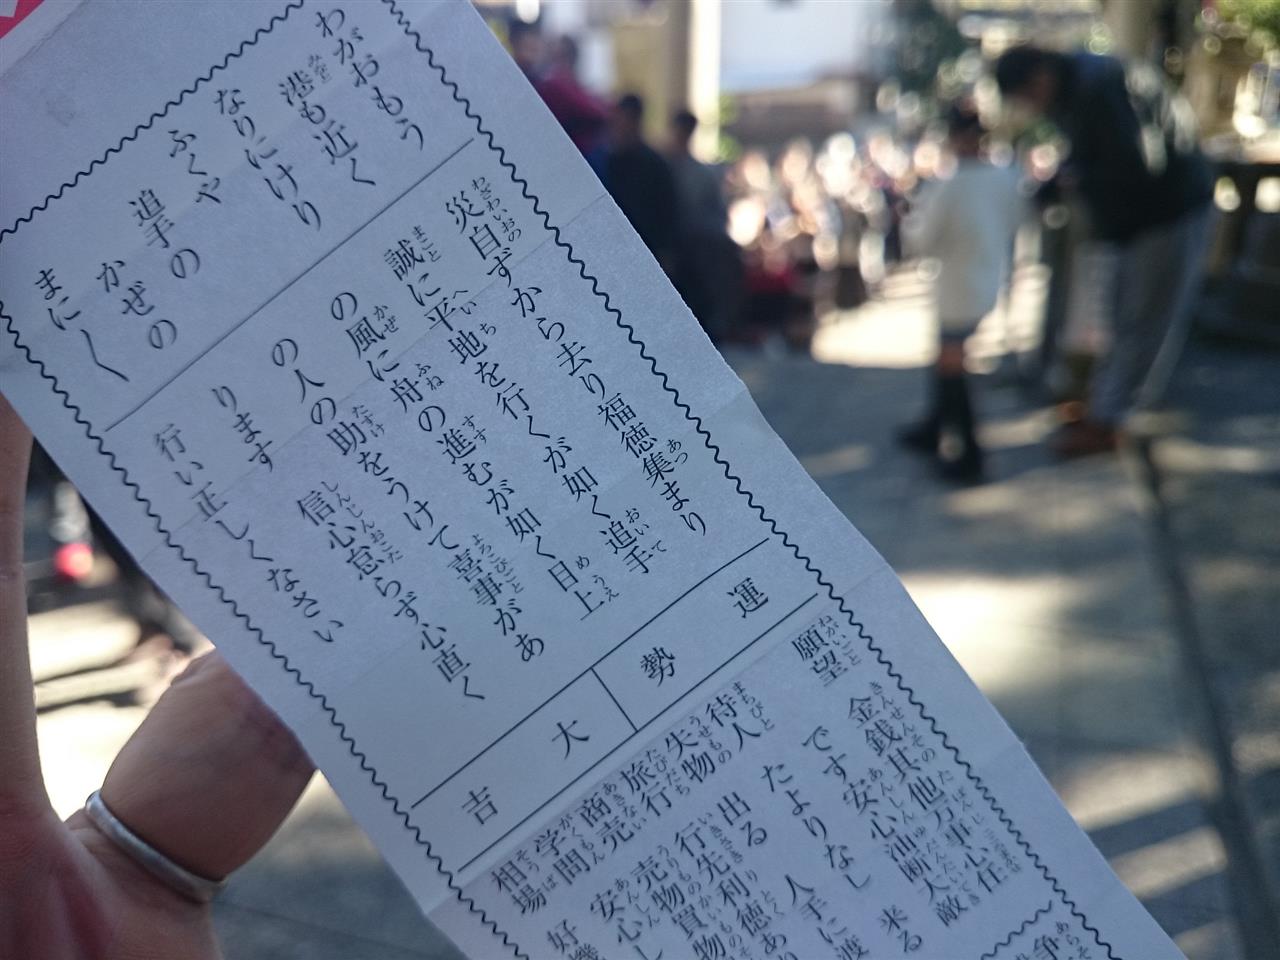 わがおもう
港も近く
なりにけり
ふくや
追手の
かぜの
まにく
災自ずから去り福徳集まり
誠に平地を行くが如く追手
の風に舟の進むが如く目上
の人の助をうけて喜事があ
ります 信心怠らず心直く
行い正しくなさい
運勢
大吉
願望 金銭其他万事心任
です安心油断大敵
待人 たよりなし 来る
失物 出る 人手に渡
旅行 行先利徳あり
商売 売物買物
学問 安心し
相場 好機
争